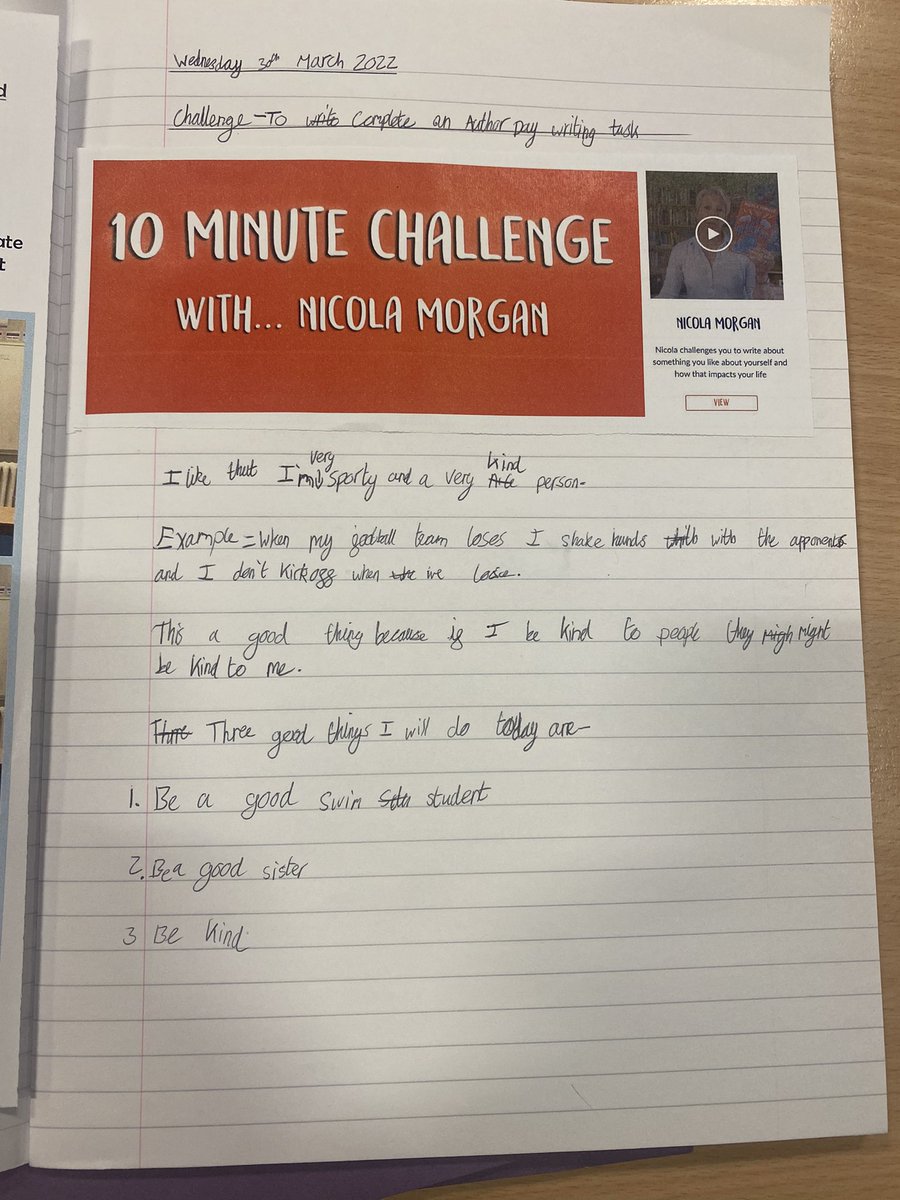 d
ate
t
Wednesday 30th March 2022
Challenge - To write complete an Author Day writing task
10 MINUTE CHALLENGE
WITH... NICOLA MORGAN
NICOLA MORGAN
Nicola challenges you to write about
something you like about yourself and
how that impacts your life
VIEW
very kind
I like that I'm sporty and a very person-
Example = When my football team loses I shake hands with the apponents
and I don't kick off when we lose.
This a good thing because if I be kind to people they migh might
be kind to me.
Three good things I will do today are-
1. Be a good swim student
2. Be a good sister
3 Be kind